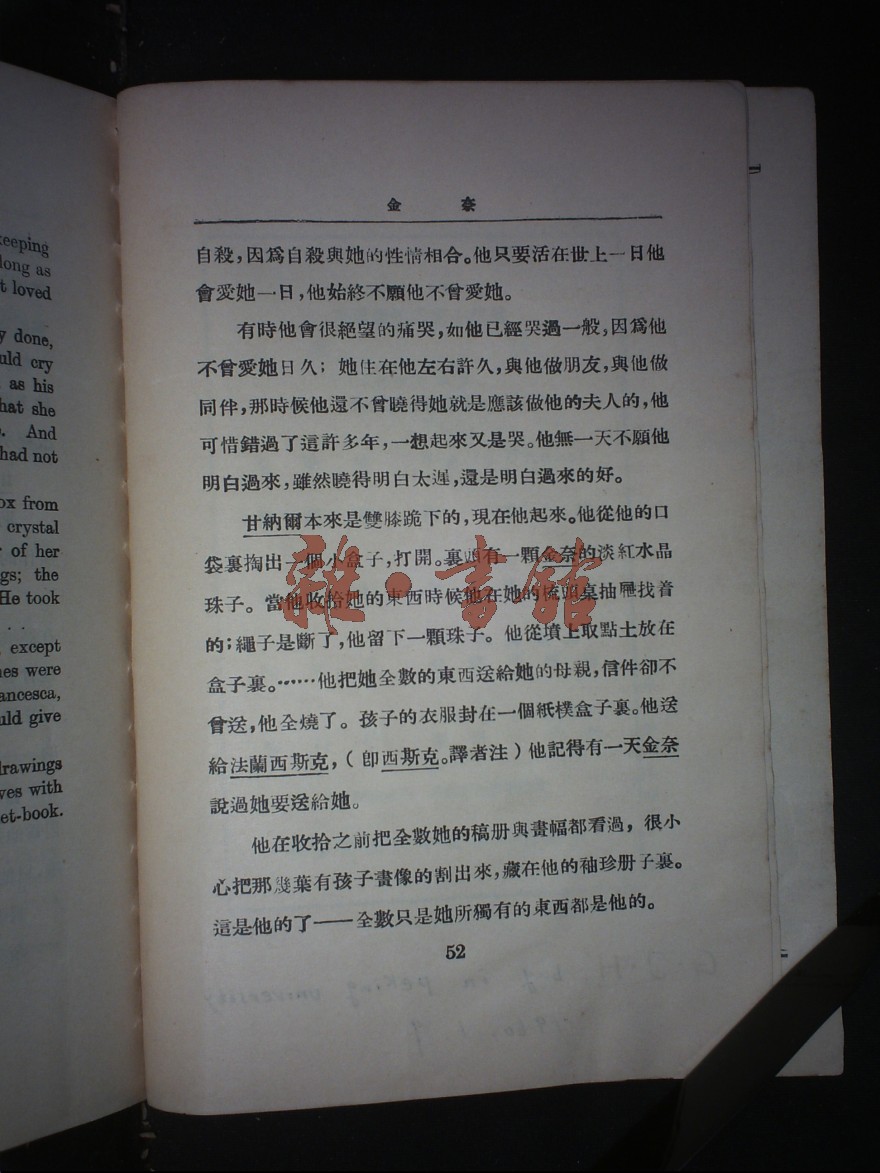 keeping
long as
t loved
y done,
uld cry
as his
hat she
. And
had not
ox from
crystal
r of her
gs; the
He took
. .
except
nes were
ancesca,
uld give
drawings
ves with
et-book.
金 奈
自殺,因爲自殺與她的性情相合。他只要活在世上一日他
會愛她一日,他始終不願他不曾愛她。
有時他會很絕望的痛哭,如他已經哭過一般,因爲他
不曾愛她日久;她住在他左右許久,與他做朋友,與他做
同伴,那時候他還不曾曉得她就是應該做他的夫人的,他
可惜錯過了這許多年,一想起來又是哭。他無一天不願他
明白過來,雖然曉得明白太遲,還是明白過來的好。
甘納爾本來是雙膝跪下的,現在他起來。他從他的口
袋裏掏出一個小盒子,打開。裏面有一顆金奈的淡紅水晶
珠子。當他收拾她的東西時候他在她的梳頭桌抽屜找着
的;繩子是斷了,他留下一顆珠子。他從墳上取點土放在
盒子裏。……他把她全數的東西送給她的母親,信件卻不
曾送,他全燒了。孩子的衣服封在一個紙樸盒子裏。他送
給法蘭西斯克,(卽西斯克。譯者注)他記得有一天金奈
說過她要送給她。
他在收拾之前把全數她的稿册與畫幅都看過,很小
心把那幾葉有孩子畫像的割出來,藏在他的袖珍册子裏。
這是他的了——全數只是她所獨有的東西都是他的。
52
雜·書館
in peking university